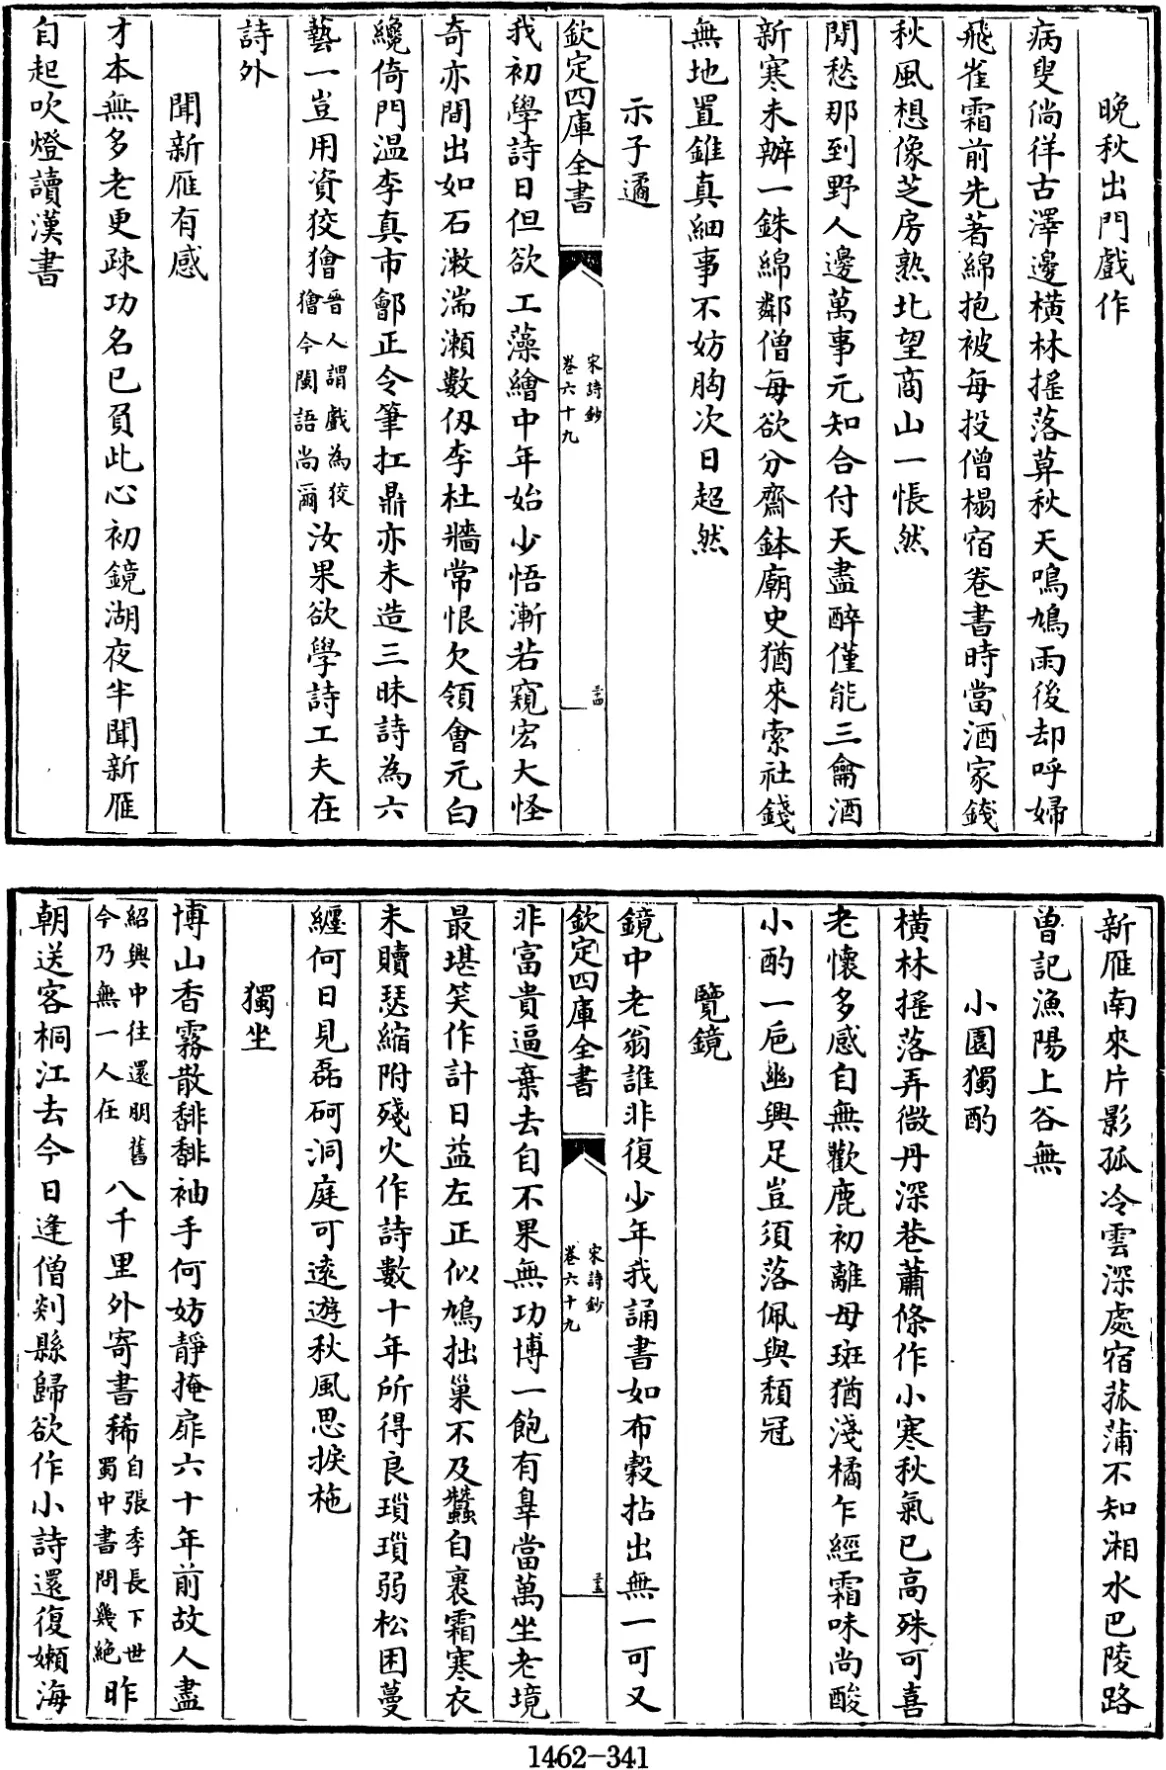 晚秋出門戲作
病叟倘徉古澤邊橫林揺落草秋天鳴鳩雨後却呼婦
飛雀霜前先著綿抱被每投僧榻宿卷書時當酒家錢
秋風想像芝房熟北望商山一悵然
閒愁那到野人邊萬事元知合付天盡醉僅能三龠酒
新寒未辦一銖綿鄰僧每欲分齋鉢廟史猶來索社錢
無地置錐真細事不妨胸次日超然
示子遹
欽定四庫全書
宋詩鈔
卷六十九
三十四
我初學詩日但欲工藻繪中年始少悟漸若窺宏大怪
奇亦間出如石潄湍瀬數仭李杜牆常恨欠領會元白
纔倚門温李真市鄶正令筆扛鼎亦未造三昧詩為六
藝一豈用資狡獪晉人謂戲為狡獪今閩語尚爾汝果欲學詩工夫在
詩外
聞新雁有感
才本無多老更疎功名已負此心初鏡湖夜半聞新雁
自起吹燈讀漢書
新雁南來片影孤冷雲深處宿菰蒲不知湘水巴陵路
曾記漁陽上谷無
小園獨酌
橫林揺落弄微丹深巷蕭條作小寒秋氣已高殊可喜
老懷多感自無歡鹿初離母斑猶淺橘乍經霜味尚酸
小酌一巵幽興足豈須落佩與頹冠
覽鏡
鏡中老翁誰非復少年我誦書如布穀拈出無一可又
欽定四庫全書
宋詩鈔
卷六十九
三十五
非富貴逼棄去自不果無功博一飽有辠當萬坐老境
最堪笑作計日益左正似鳩拙巢不及蠶自裹霜寒衣
未贖瑟縮附殘火作詩數十年所得良瑣瑣弱松困蔓
纏何日見磊砢洞庭可遠遊秋風思捩柂
獨坐
博山香霧散馡馡袖手何妨靜掩扉六十年前故人盡
紹興中往還朋舊今乃無一人在八千里外寄書稀自張季長下世蜀中書問幾絶昨
朝送客桐江去今日逢僧剡縣歸欲作小詩還復嬾海
1462-341